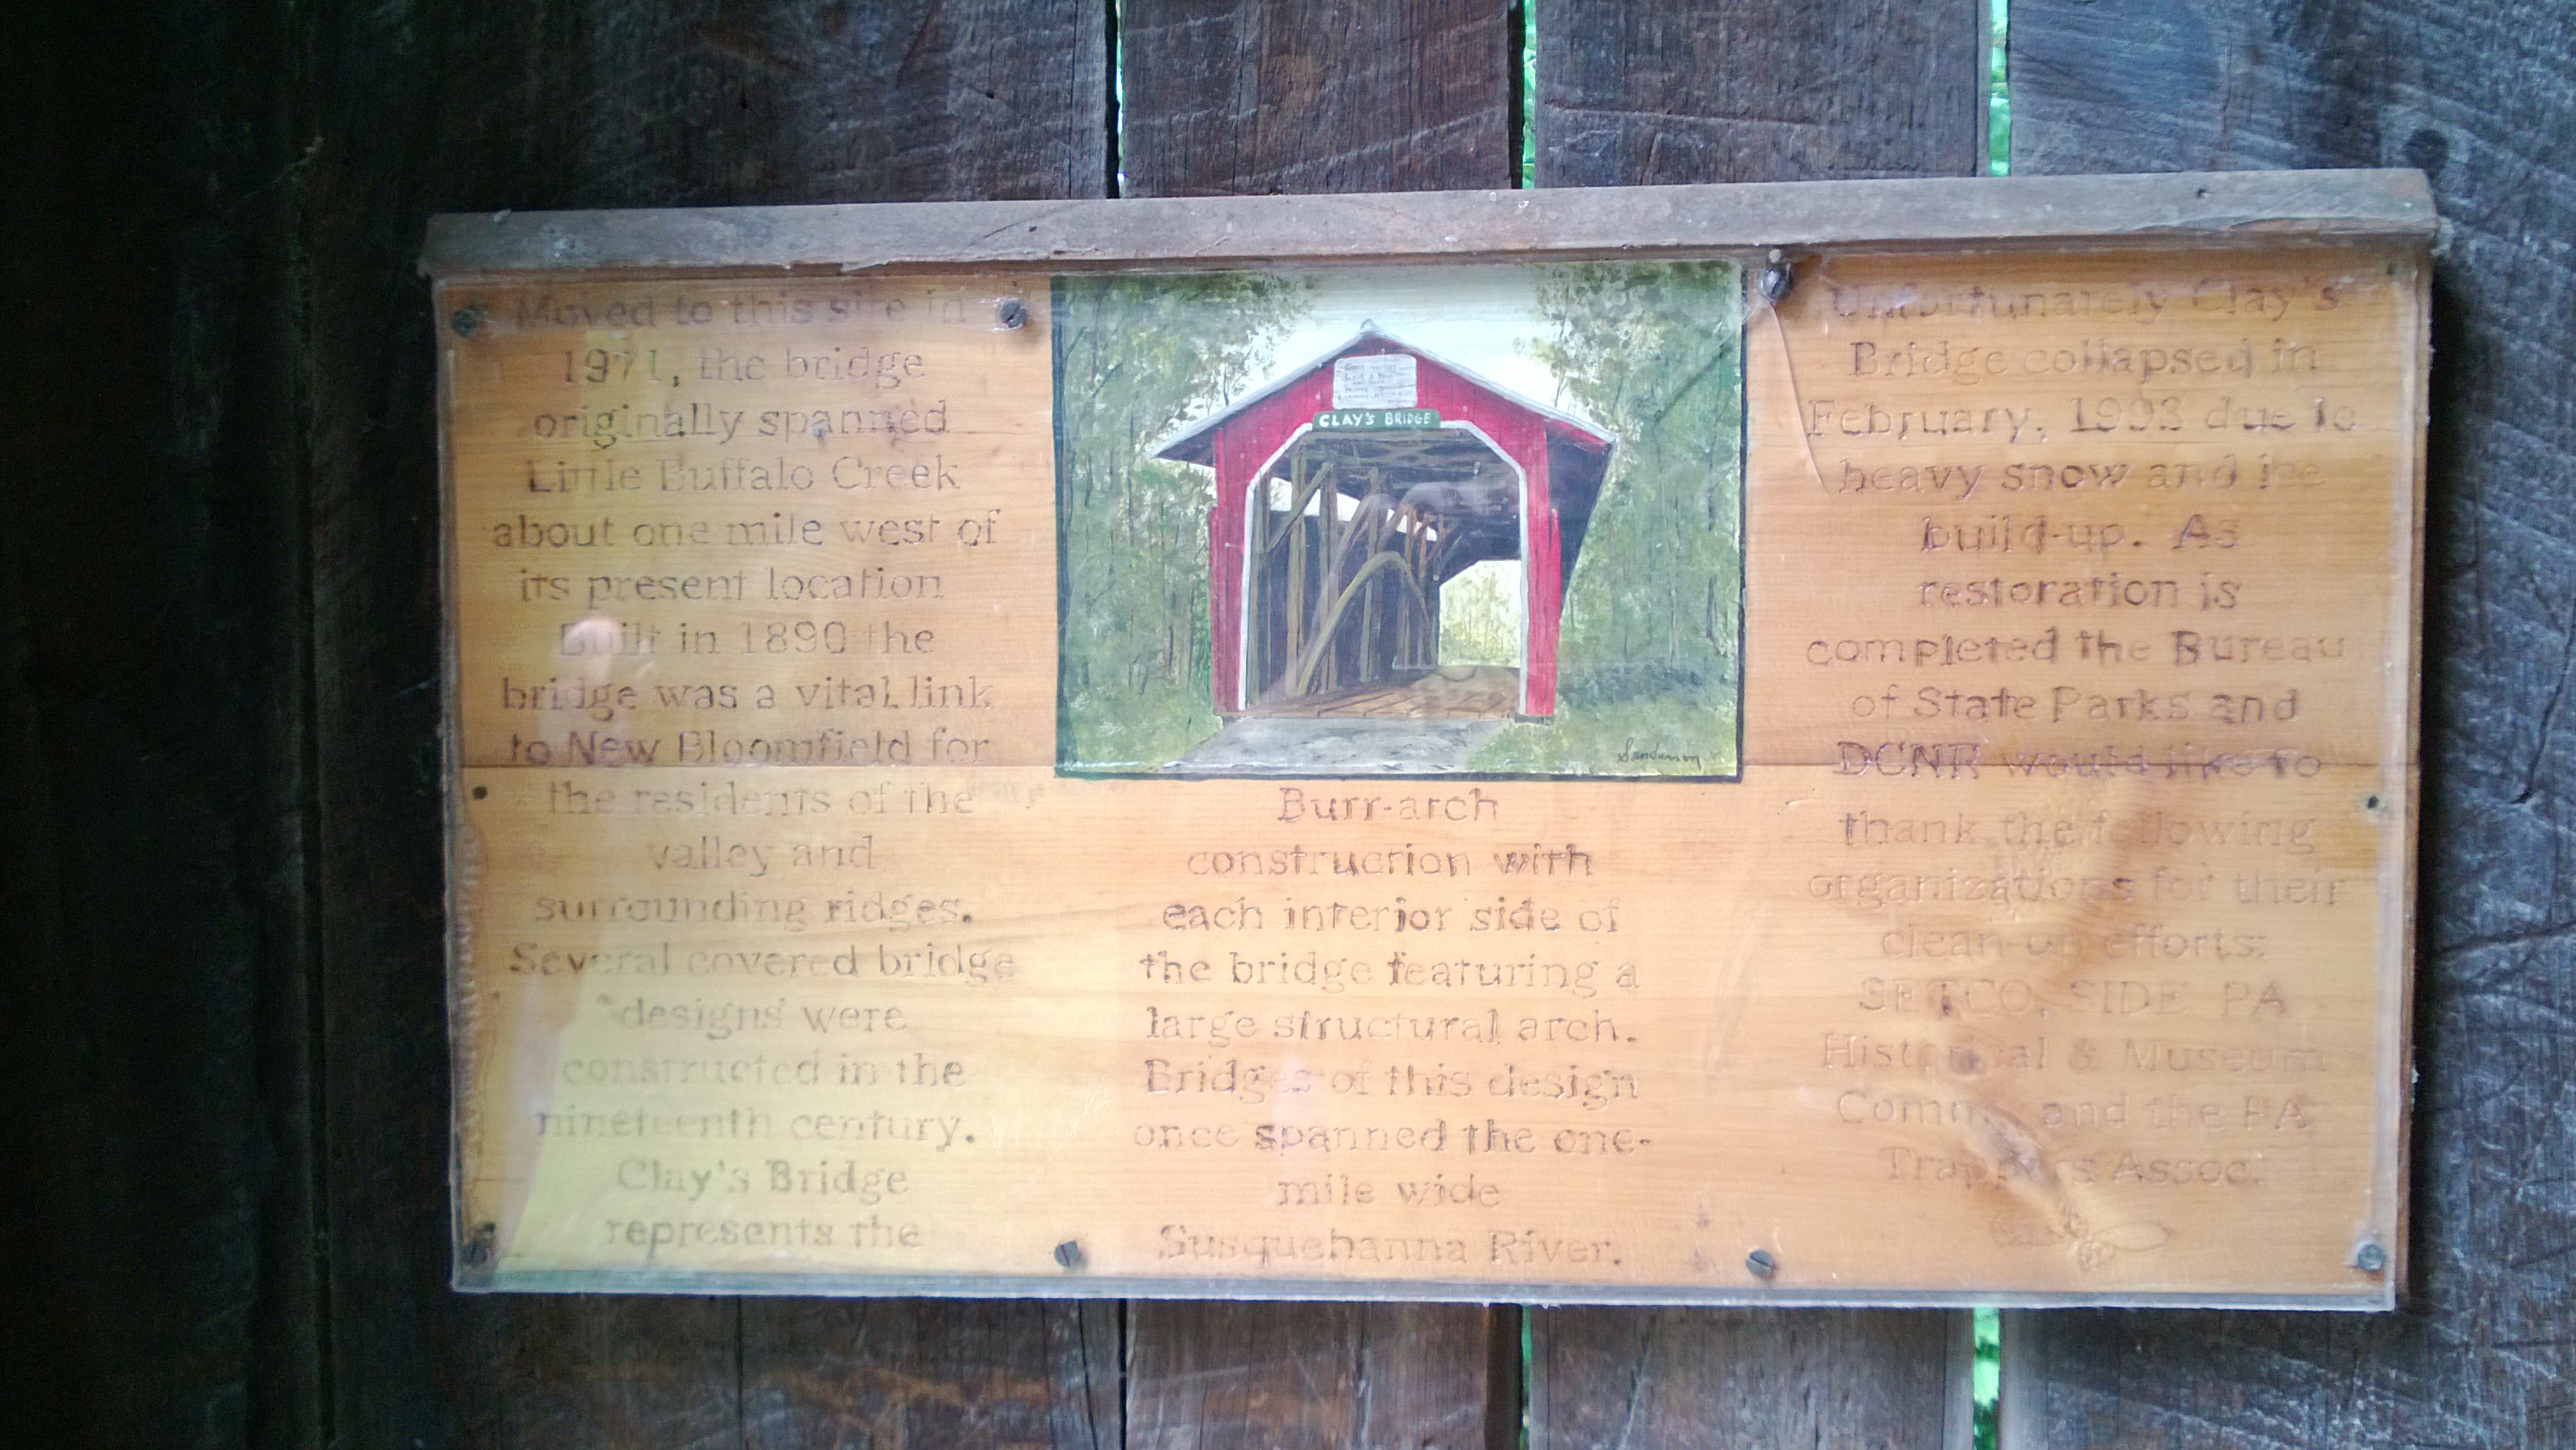 Moved to this site in
1971, the bridge
originally spanned
Little Buffalo Creek
about one mile west of
its present location
Built in 1890 the
bridge was a vital link
to New Bloomfield for
the residents of the
valley and
surrounding ridges.
Several covered bridge
designs were
constructed in the
nineteenth century.
Clay's Bridge
represents the
CLAY'S BRIDGE
Sanderson
Burr-arch
construction with
each interior side of
the bridge featuring a
large structural arch.
Bridges of this design
once spanned the one-
mile wide
Susquehanna River.
Unfortunately Clay's
Bridge collapsed in
February, 1993 due to
heavy snow and ice
build-up. As
restoration is
completed the Bureau
of State Parks and
DCNR would like to
thank the following
organizations for their
clean-up efforts:
SETCO, SIDE PA
Historical & Museum
Comm. and the PA
Trappers Assoc.